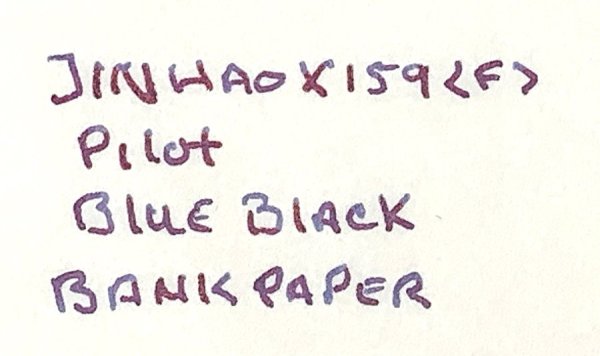 JINHAO X159 <F>
Pilot
BLUE BLACK
BANK PAPER